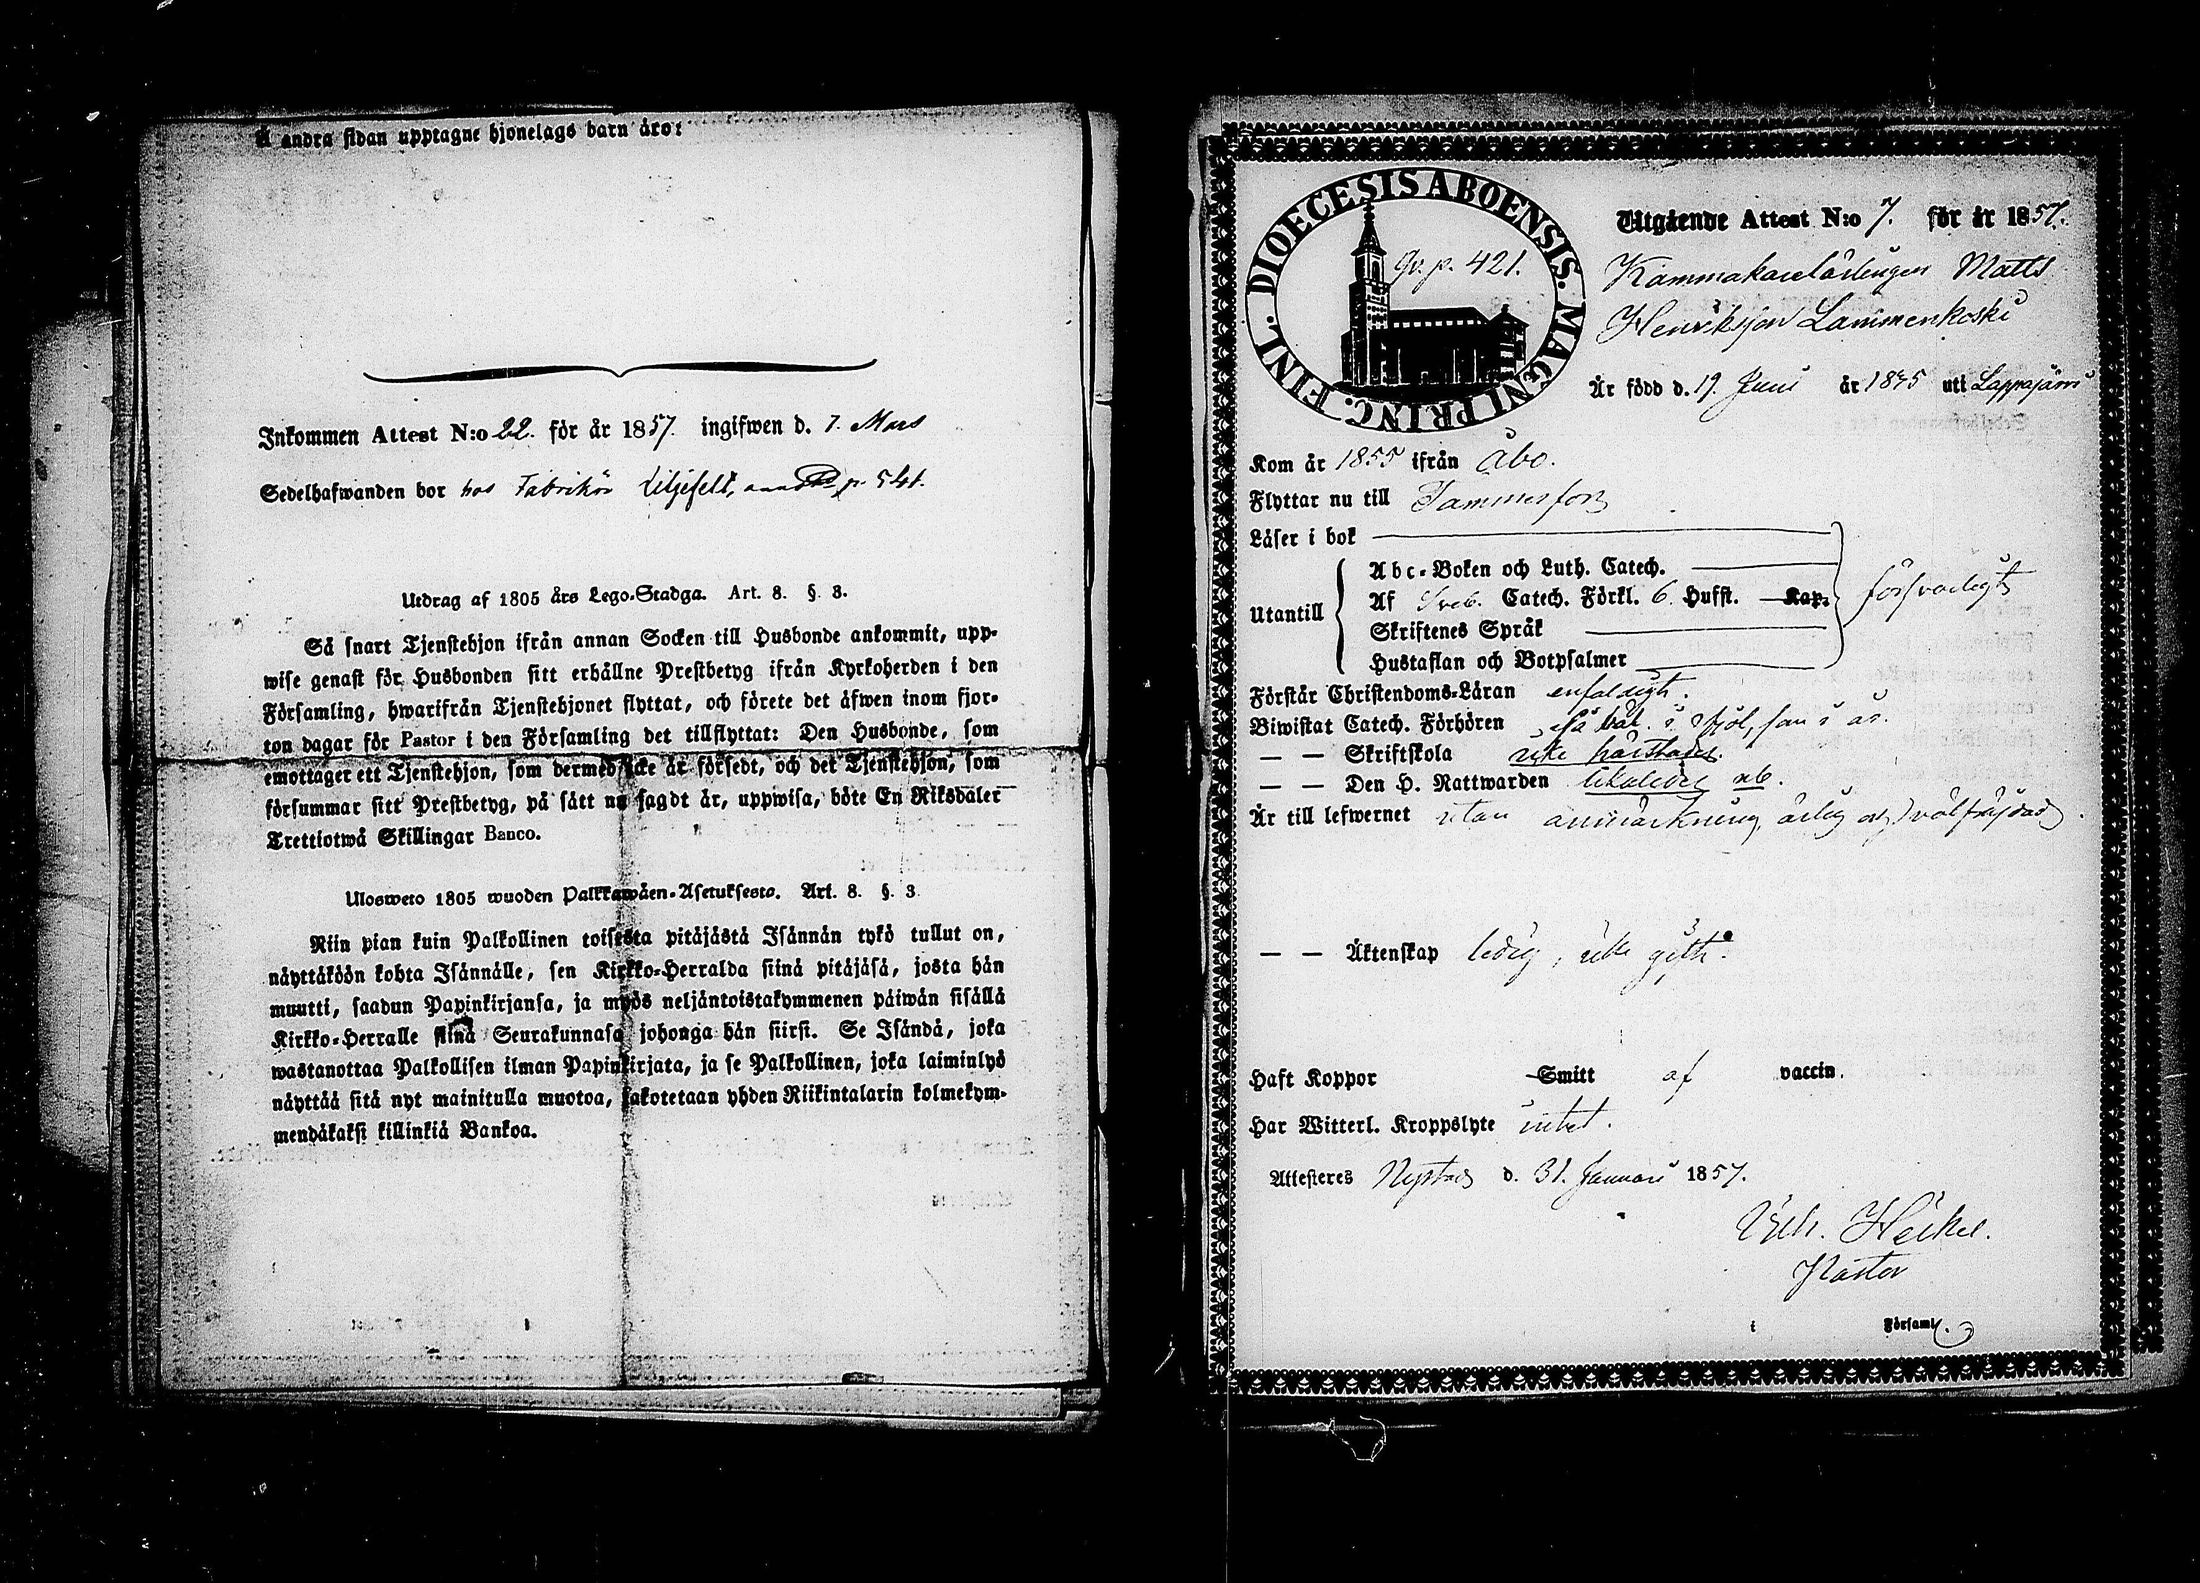 Å andra sidan upptagne hjonelags barn äro:
Inkommen Attest N:o 22. för år 1857. ingifwen d. 7. Mars
Sedelhafwanden bor hos Fabrikör Liljefelt, p. 541.
Utdrag af 1805 års Lego-Stadga. Art. 8. §. 3.
Så snart Tjenstehjon ifrån annan Socken till Husbonde ankommit, upp-
wise genast för Husbonden sitt erhållne Prestbetyg ifrån Kyrkoherden i den
Församling, hwarifrån Tjenstehjonet flyttat, och förete det äfwen inom fjor-
ton dagar för Pastor i den Församling det tillflyttat: Den Husbonde, som
emottager ett Tjenstehjon, som dermed icke är försedt, och det Tjenstehjon, som
försummar sitt Prestbetyg, på sätt nu sagdt är, uppwisa, böte En Riksdaler
Trettiotwå Skillingar Banco.
Ulosweto 1805 wuoden Palkkawäen-Asetuksesta. Art. 8. §. 3
Niin pian kuin Palkollinen toisesta pitäjästä Isännän tykö tullut on,
näyttäköön kohta Isännälle, sen Kirkko-Herralda siinä pitäjäsä, josta hän
muutti, saadun Papinkirjansa, ja myös neljäntoistakymmenen päiwän sisällä
Kirkko-Herralle siinä Seurakunnasa johonga hän siirsi. Se Isändä, joka
wastanottaa Palkollisen ilman Papinkirjata, ja se Palkollinen, joka laiminlyö
näyttää sitä nyt mainitulla muotoa, sakotetaan yhden Riikintalarin kolmekym-
mendäkaksi killinkiä Bankoa.
DIOECESIS ABOENSIS. MAGNI PRINC. FINL.
p. 421.
Utgående Attest N:o 7. för år 1857.
Kammakarelärlingen Matts
Henriksson Lammenkoski
År född d. 19. Juni år 1835 uti Lappajärvi
Kom år 1855 ifrån Åbo.
Flyttar nu till Tammerfors
Läser i bok
Utantill
Abc-Boken och Luth. Catech.
Af Sveb. Catech. Förkl. 6 Hufst. Kap.
Skriftenes Språk
Hustaflan och Botpsalmer
försvarligt
Förstår Christendoms-Läran enfaldigt.
Biwistat Catech. Förhören
— — Skriftskola icke härstädes.
— — Den H. Nattwarden likaledes
Är till lefwernet utan anmärkning, ärlig och välfräjdad.
— — Äktenskap ledig, icke gift.
Haft Koppor Smitt af vaccin.
Har Witterl. Kroppslyte intet.
Attesteres Nystad d. 31. Januari 1857.
Heikel.
Pastor
i Församl.